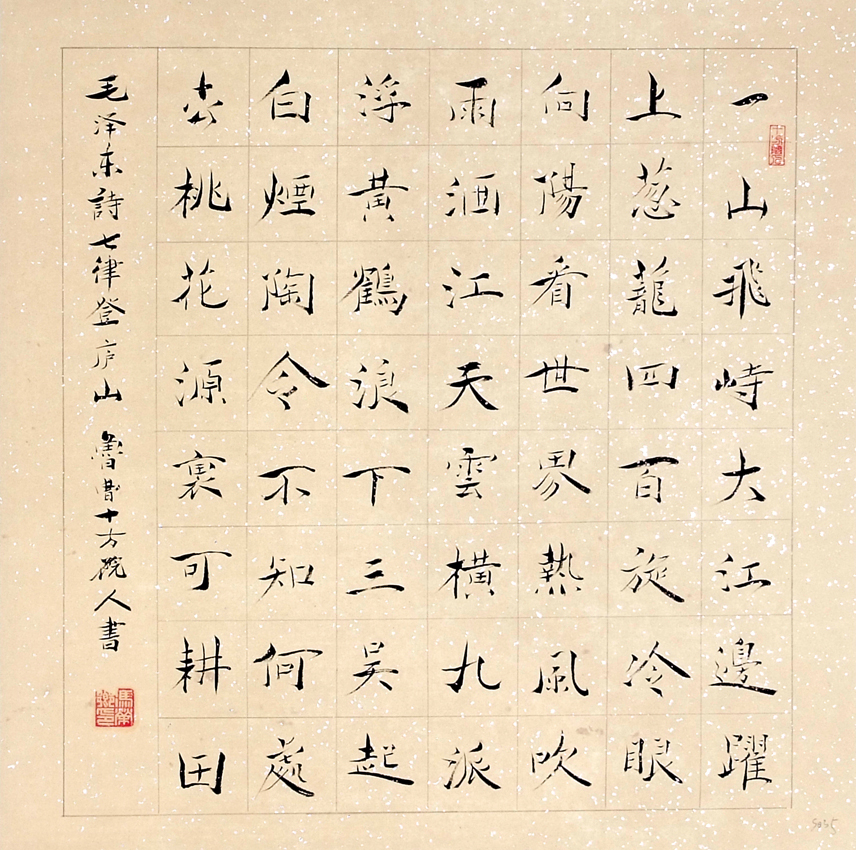 一山飛峙大江邊躍
上葱蘢四百旋冷眼
向陽看世界熱風吹
雨洒江天雲橫九派
浮黃鶴浪下三吳起
白煙陶令不知何處
去桃花源裏可耕田
毛泽东詩七律登庐山 魯曹十方人書